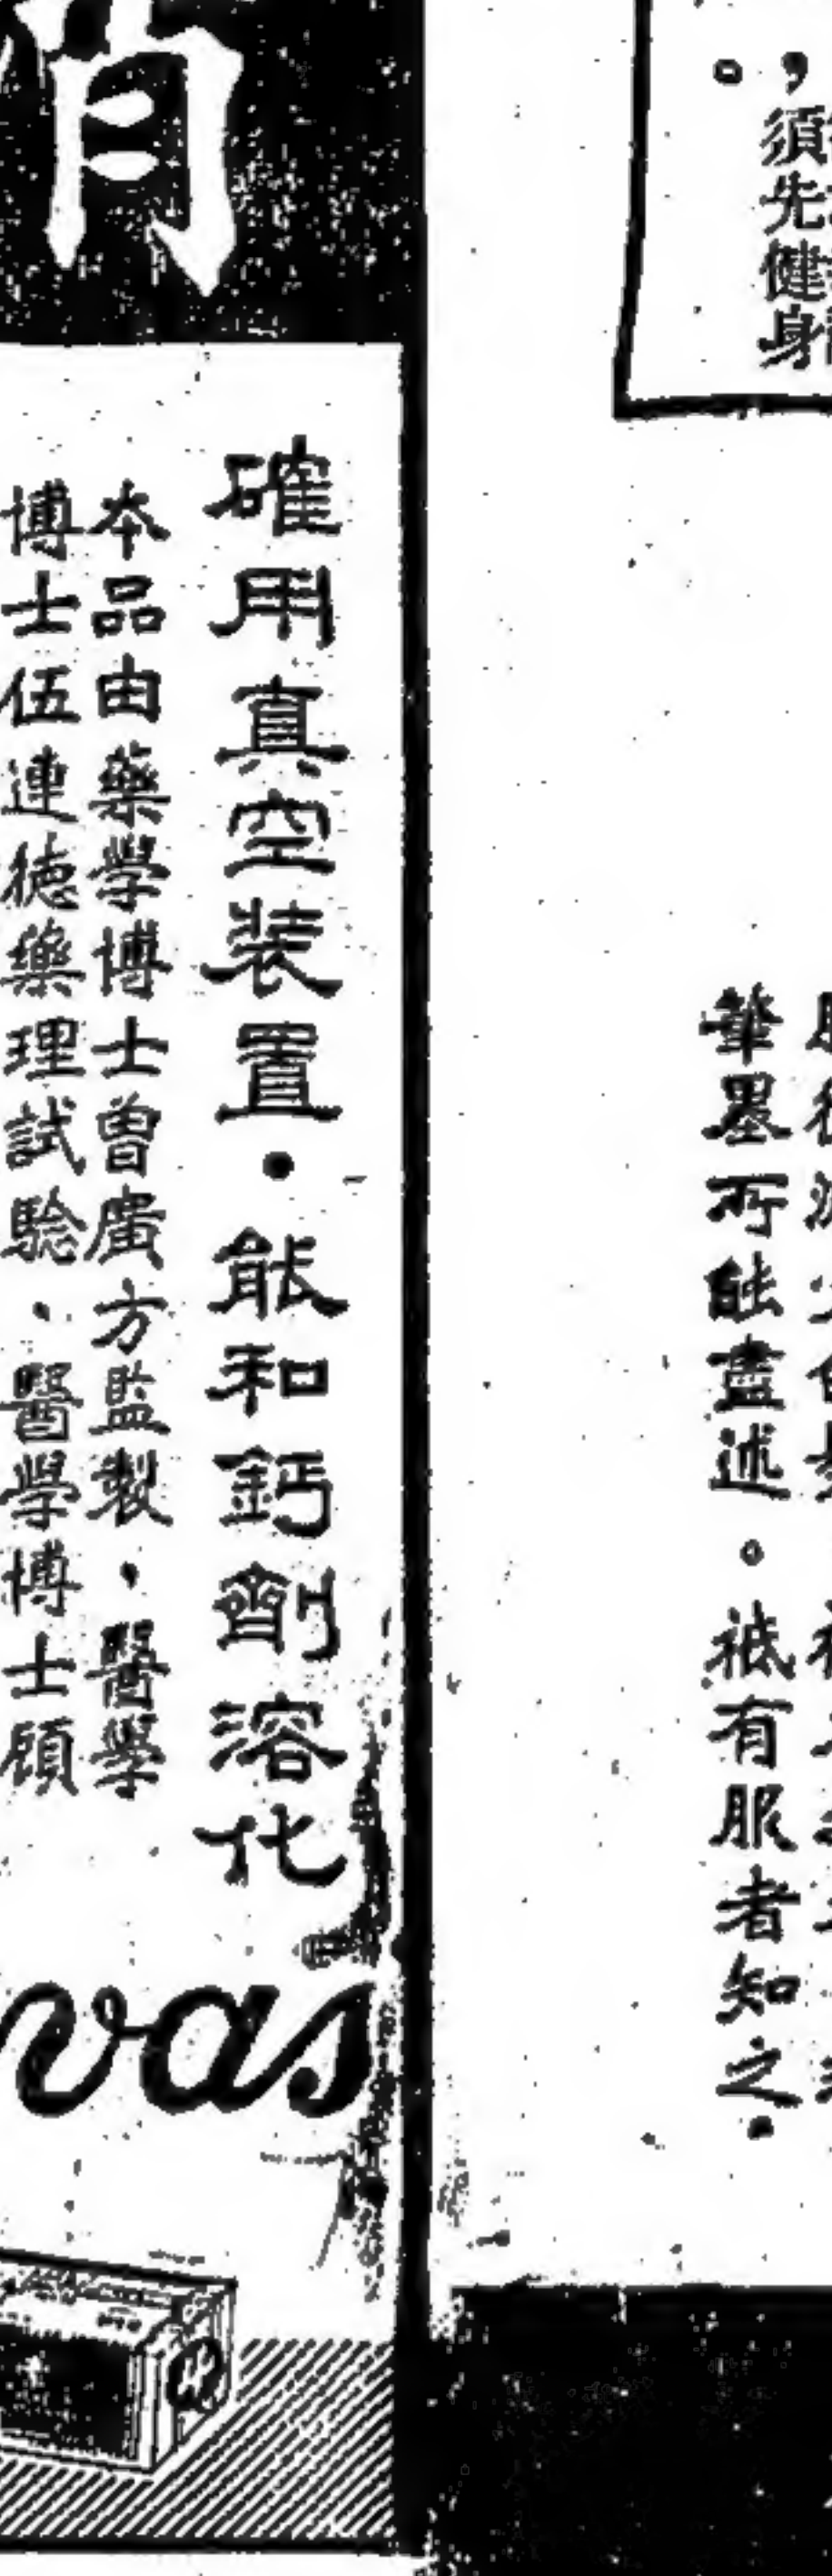 ，須先健身
。
筆墨所能盡述。祇有服者知之.
確用真空装置·能和鈣劑溶化
本品由藥學博士曾廣方監製，醫學
博士伍連德藥理試驗.醫學博士顧
vas